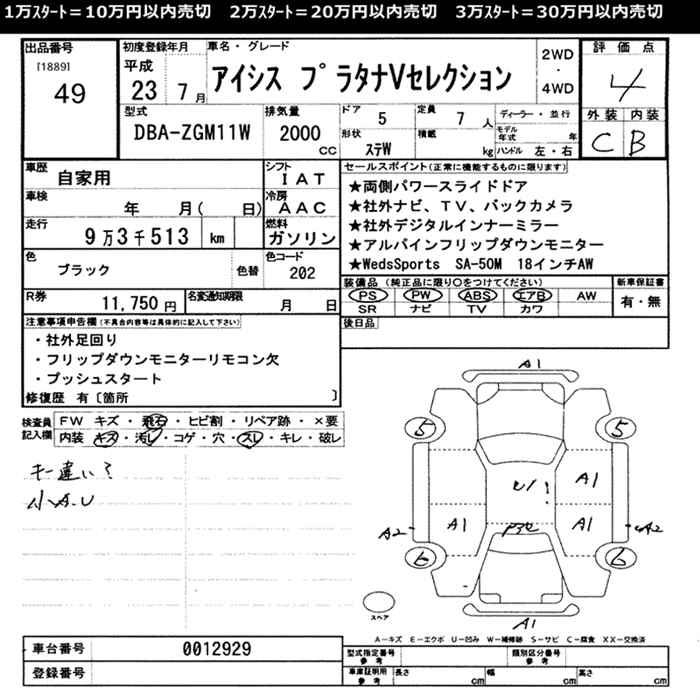 1万ｽﾀｰﾄ＝10万円以内売切　2万ｽﾀｰﾄ＝20万円以内売切　3万ｽﾀｰﾄ＝30万円以内売切
出品番号
[1889]
49
初度登録年月
平成
23 7月
車名・グレード
アイシス プラタナVセレクション
2WD
・
4WD
評価点
4
外装 内装
C B
型式
DBA-ZGM11W
排気量
2000
CC
ドア
5
定員
7 人
形状
ステW
積載
kg
ディーラー・並行
モデル年式 年
ハンドル 左・右
車歴
自家用
シフト
IAT
車検
年 月( 日)
冷房
AAC
走行
9万3千513 km
燃料
ガソリン
色
ブラック
色替
色コード
202
R券
11,750円
名変通知期限
月 日
セールスポイント(正常に機能するものに限ります)
★両側パワースライドドア
★社外ナビ、TV、バックカメラ
★社外デジタルインナーミラー
★アルパインフリップダウンモニター
★WedsSports SA-50M 18インチAW
装備品(純正品に限り○をつけてください)
PS PW ABS エアB AW
SR ナビ TV カワ
新車保証書
有・無
後日品
注意事項申告欄(不具合内容等は具体的に記入して下さい)
・社外足回り
・フリップダウンモニターリモコン欠
・プッシュスタート
修復歴 有〔箇所 〕
検査員記入欄
FW キズ・飛石・ヒビ割・リペア跡・×要
内装 キズ・汚レ・コゲ・穴・スレ・キレ・破レ
キー違い?
小A.U
A1
5 5
A1
U1!
A1 A1
A2 A2
6 6
A1
スペア
A－キズ E－エクボ U－凹み W－補修跡 S－サビ C－腐食 XX－交換済
車台番号
0012929
登録番号
型式指定番号
参考
類別区分番号
参考
車庫証明用
参考
長さ cm 幅 cm 高さ cm